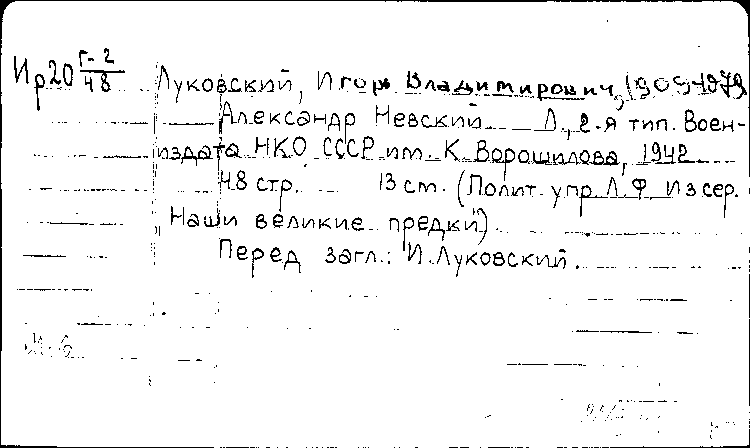 Ир20 Г-2/48 Луковский, Игорь Владимирович, 1909-1979
Александр Невский Л., 2-я тип. Воен-
издата НКО СССР им. К. Ворошилова, 1942
48 стр. 13 см. (Полит. упр. Л.Ф. Из сер.
"Наши великие предки")
Перед загл.: И. Луковский.